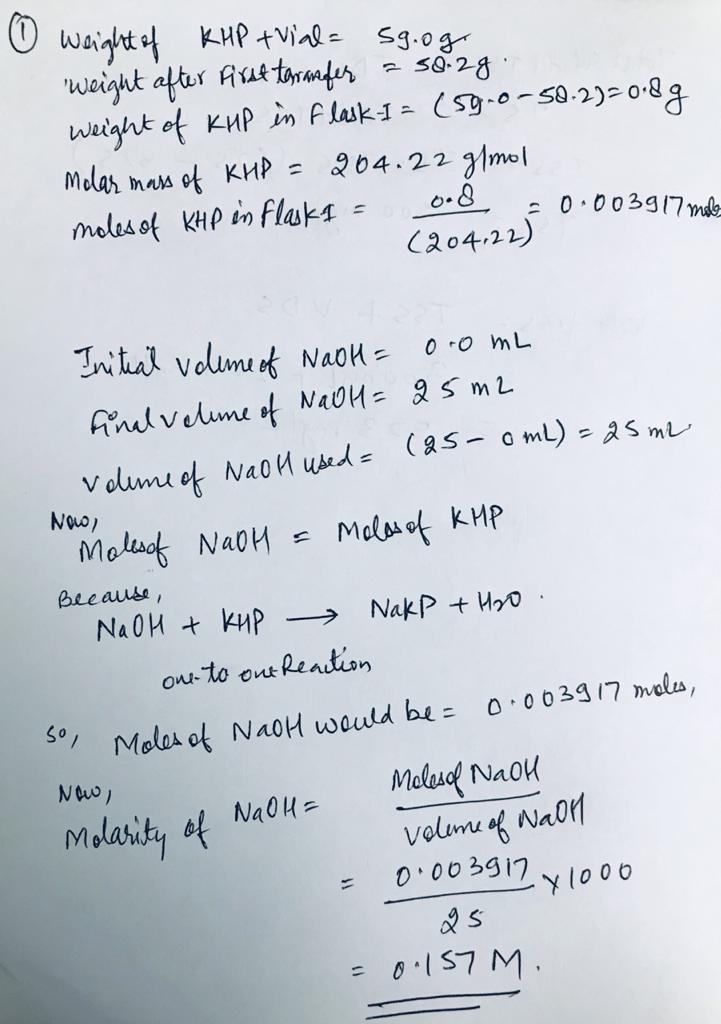 ① Weight of KHP + Vial = 59.0 gr
Weight after First transfer = 58.2 g.
Weight of KHP in Flask-I = (59.0 - 58.2) = 0.8 g
Molar mass of KHP = 204.22 g/mol
moles of KHP in flask I = 0.8 / (204.22) = 0.003917 moles
Initial volume of NaOH = 0.0 mL
final volume of NaOH = 25 mL
Volume of NaOH used = (25 - 0 mL) = 25 mL
Now,
Moles of NaOH = Moles of KHP
Because,
NaOH + KHP → NaKP + H2O.
one-to one Reaction
So, Moles of NaOH would be = 0.003917 moles,
Now,
Molarity of NaOH = Moles of NaOH / Volume of NaOH
= 0.003917 / 25 × 1000
= 0.157 M.